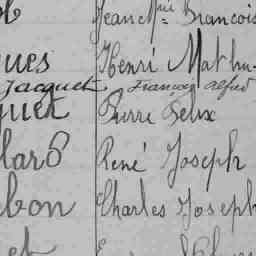 Jean Mie François
ques Henri Math
Jacquet François Alfred
quet Pierre Félix
lard René Joseph
bon Charles Joseph
et